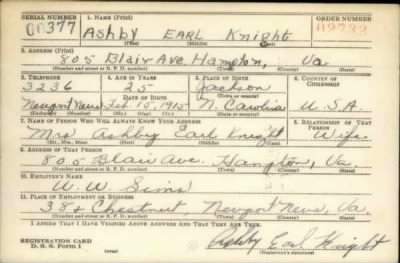 SERIAL NUMBER 1. NAME (Print) ORDER NUMBER
00377 Ashby Earl Knight
(First) (Middle) (Last)
2. ADDRESS (Print)
805 Blair Ave. Hampton, Va.
(Number and street or R. F. D. number) (Town) (County) (State)
3. TELEPHONE 4. AGE IN YEARS 5. PLACE OF BIRTH 6. COUNTRY OF CITIZENSHIP
3236 25 Jackson
DATE OF BIRTH (Town or county)
Newport News Feb. 15, 1915 N. Carolina U.S.A
(Exchange) (Number) (Mo.) (Day) (Yr.) (State or country)
7. NAME OF PERSON WHO WILL ALWAYS KNOW YOUR ADDRESS 8. RELATIONSHIP OF THAT PERSON
Mrs Ashby Earl Knight Wife
(Mr., Mrs., Miss) (First) (Middle) (Last)
9. ADDRESS OF THAT PERSON
805 Blair Ave. Hampton, Va.
(Number and street or R. F. D. number) (Town) (County) (State)
10. EMPLOYER'S NAME
W. W. Sims
11. PLACE OF EMPLOYMENT OR BUSINESS
38 & Chestnut, Newport News, Va.
(Number and street or R. F. D. number) (Town) (County) (State)
I AFFIRM THAT I HAVE VERIFIED ABOVE ANSWERS AND THAT THEY ARE TRUE.
REGISTRATION CARD
D. S. S. Form 1 Ashby Earl Knight
(Registrant's signature)